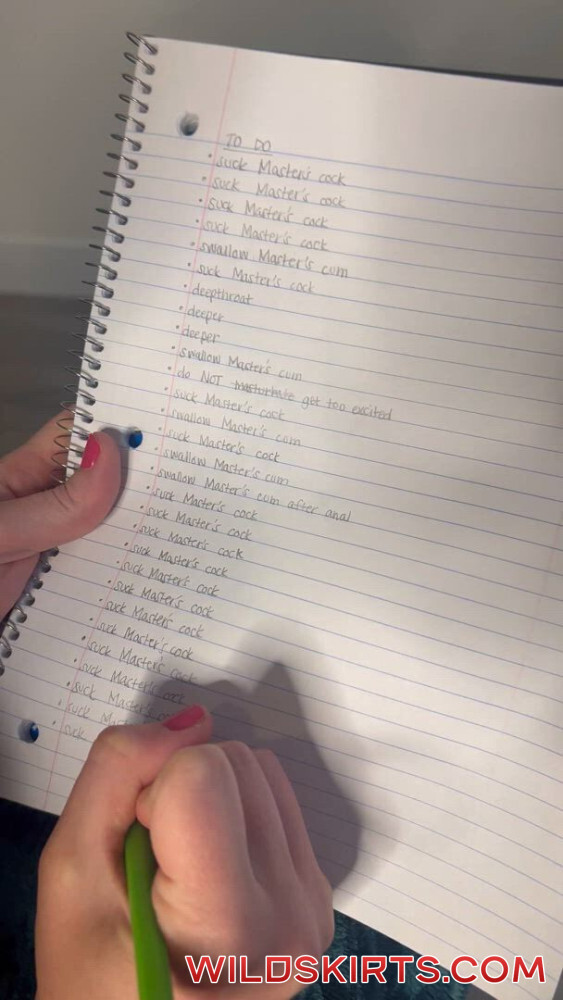 TO DO
• suck Master's cock
• suck Master's cock
• suck Master's cock
• suck Master's cock
• swallow Master's cum
• suck Master's cock
• deepthroat
• deeper
• deeper
• swallow Master's cum
• do NOT masturbate get too excited
• suck Master's cock
• swallow Master's cum
• suck Master's cock
• swallow Master's cum
• swallow Master's cum after anal
• suck Master's cock
• suck Master's cock
• suck Master's cock
• suck Master's cock
• suck Master's cock
• suck Master's cock
• suck Master's cock
• suck Master's cock
• suck Master's cock
• suck Master's cock
• suck Master's
• suck
• suck
WILDSKIRTS.COM